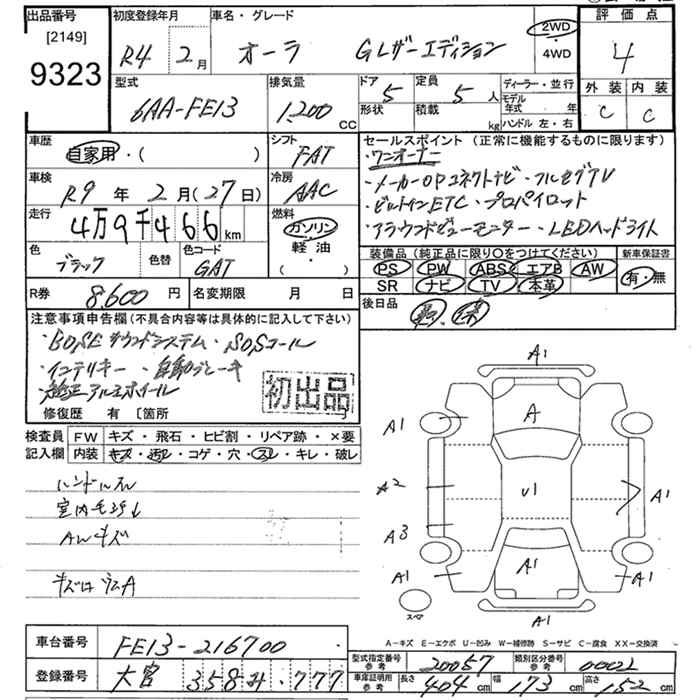 出品番号
[2149]
9323
初度登録年月
R4 2月
車名・グレード
オーラ Gレザーエディション
2WD
・
4WD
評価点
4
外装 内装
C C
型式
6AA-FE13
排気量
1,200 CC
ドア 5
形状
定員 5 人
積載 kg
ディーラー・並行
モデル年式 年
ハンドル 左・右
車歴
自家用・( )
シフト
FAT
セールスポイント (正常に機能するものに限ります)
・ワンオーナー
・メーカーOPコネクトナビ・フルセグTV
・ビルトインETC・プロパイロット
・アラウンドビューモニター・LEDヘッドライト
車検
R9年 2月(27日)
冷房
AAC
走行
4万9千466km
燃料
ガソリン
軽油
・( )
色
ブラック
色替
色コード
GAT
装備品 (純正品に限り○をつけてください)
PS PW ABS エアB AW
SR ナビ TV 本革
新車保証書
有・無
R券 8,600円
名変期限 月 日
後日品
注意事項申告欄(不具合内容等は具体的に記入して下さい)
・BOSEサウンドシステム・SOSコール
・インテリキー・自動ブレーキ
・純正アルミホイール
初出品
修復歴 有 [箇所
検査員記入欄
FW キズ・飛石・ヒビ割・リペア跡・×要
内装 キズ・汚レ・コゲ・穴・スレ・キレ・破レ
ハンドルスレ
AWキズ
A1
A
A1
A2
U1
A1
A3
A1
A1
A1
A1
スペア
A-キズ E-エクボ U-凹み W-補修跡 S-サビ C-腐食 XX-交換済
車台番号 FE13-216700
登録番号 大宮 358 み・777
型式指定番号 参考 20057
類別区分番号 参考 0002
車庫証明用 参考 長さ 404cm 幅 173cm 高さ 152cm